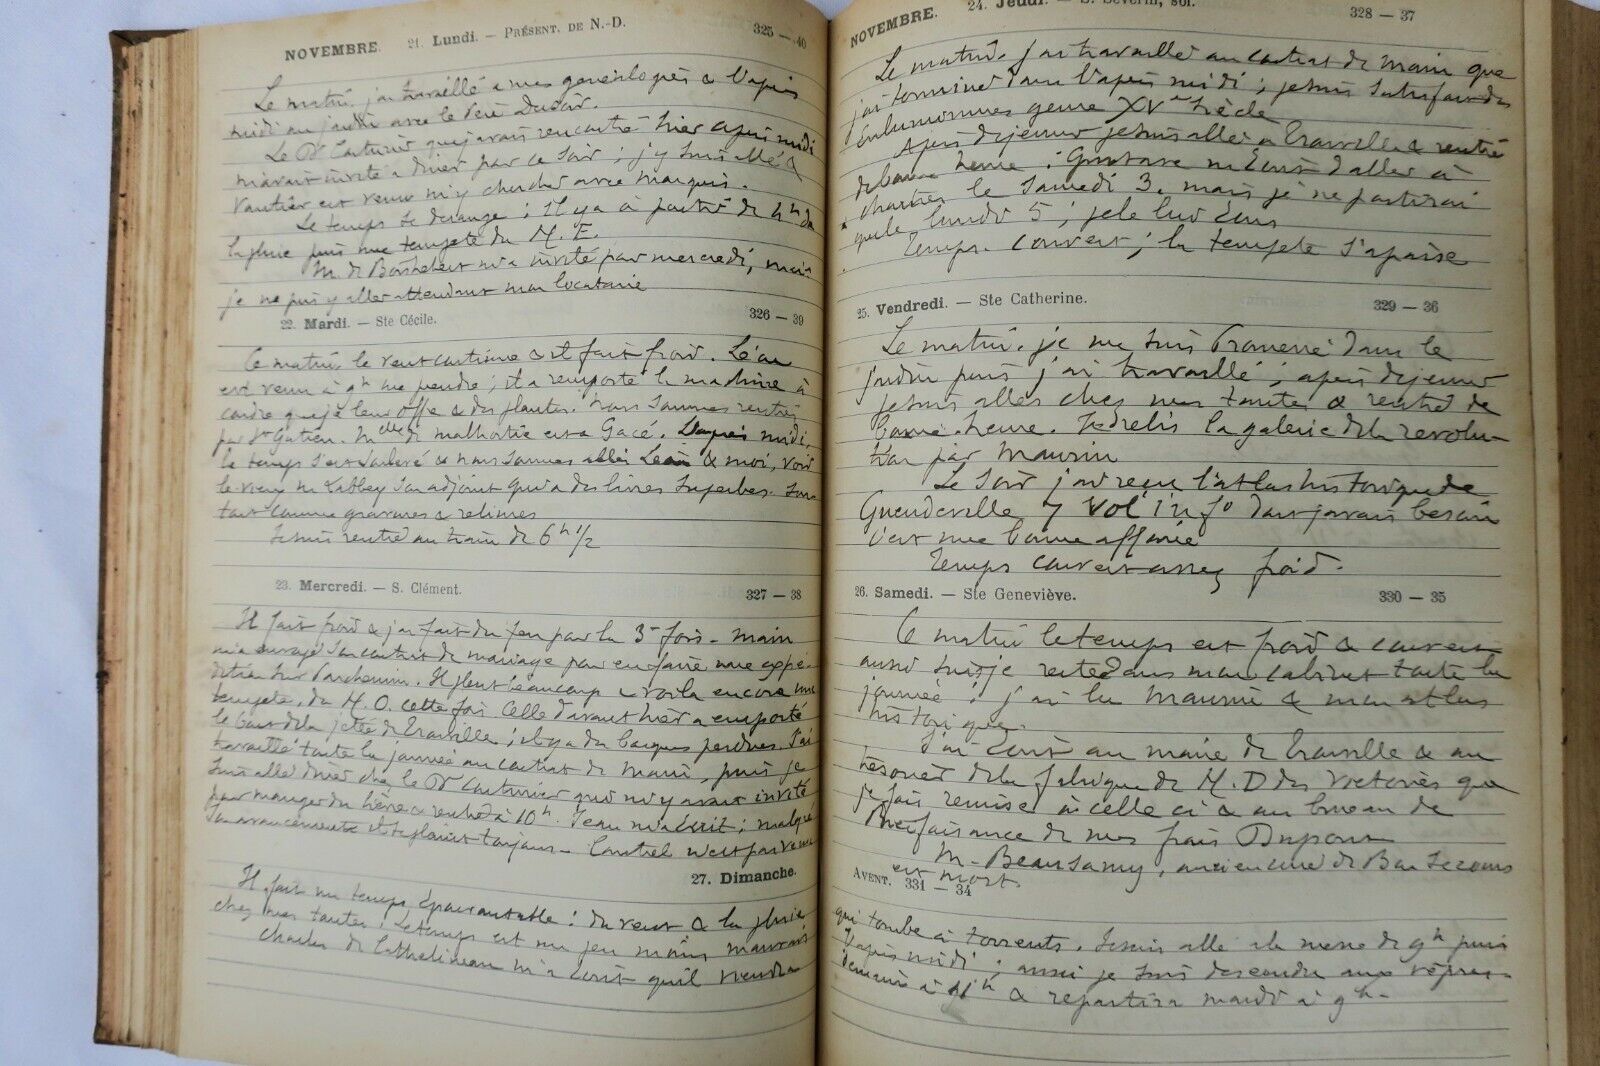 NOVEMBRE. 21. Lundi. — PRÉSENT. DE N.-D. 325 — 40
Le matin j'ai travaillé a mes généalogies & l'après
midi au jardin avec le Père
Le Dr Couturier que j'avais rencontré hier après midi
m'avait invité a diner par ce soir ; j'y suis allé &
Vautier est venu m'y chercher avec marquis.
Le temps se derange ; il y a à partir de 4h de
la pluie puis une tempete du N. E.
M. de m'a invité pour mercredi, mais
je ne puis y aller attendant mon locataire
22. Mardi. — Ste Cécile. 326 — 39
Ce matin le vent continue & il fait froid. Léon
est venu à 9h me prendre ; il a remporté la machine à
coudre que je leur offre & des plantes. Nous sommes rentrés
par St Gatien. Mlle de Malhortie est a Gacé. L'après midi,
le temps s'est & nous sommes allés Léon & moi, voir
le vieux M. Labbey son adjoint qui a des livres superbes. Sur-
tout comme gravures & reliures
Je suis rentré au train de 6h 1/2
23. Mercredi. — S. Clément. 327 — 38
Il fait froid & j'ai fait du feu par la 3e fois. Main
m'a envoyé son contrat de mariage pour en faire une expé-
dition sur Parchemin. Il pleut beaucoup & voila encore une
tempete, du N. O. cette fois. Celle d'avant hier a emporté
le bout de la jetée de Trouville ; il y a des barques perdues. J'ai
travaillé toute la journée au contrat de Main, puis je
suis allé diner chez le Dr Couturier qui m'y avait invité
pour manger du lièvre & rentré à 10h. Jean m'a écrit ; malgré
son avancement il se plaint toujours.
27. Dimanche.
Il fait un temps épouvantable : du vent & la pluie
chez mes tantes ; le temps est un peu moins mauvais
Charles de Cathelineau m'a écrit qu'il viendra
NOVEMBRE. 24. Jeudi. — S. Séverin, sol. 328 — 37
Le matin, j'ai travaillé au contrat de Main que
j'ai terminé dans l'après midi ; je suis satisfait des
enluminures genre XVe siècle
Après dejeuner je suis allé a Trouville & rentré
de bonne heure ; Gustave m'écrit d'aller à
chartres le Samedi 3, mais je ne partirai
que le lundi 5 ; je le lui écris
Temps couvert ; la tempete s'apaise
25. Vendredi. — Ste Catherine. 329 — 36
Le matin, je me suis Promené dans le
jardin puis j'ai travaillé ; après dejeuner
je suis allé chez mes tantes & rentré de
bonne heure. Je relis la galerie de la révolu-
tion par Maurin
Le soir j'ai reçu l'atlas historique de
Gueudeville 7 vol in fo dont j'avais besoin
c'est une bonne affaire
Temps couvert assez froid.
26. Samedi. — Ste Geneviève. 330 — 35
Ce matin le temps est froid & couvert
aussi suis je resté dans mon cabinet toute la
journée ; j'ai lu Maurin & mon atlas
historique.
J'ai écrit au maire de Trouville & au
trésorier de la fabrique de N. D des Victoires que
je fais remise à celle ci & au bureau de
Bienfaisance de mes frais Dupont
M. Beausamy, ancien curé de Bon Secours
est mort
AVENT. 331 — 34
qui tombe à torrents. Je suis allé a la messe de 9h puis
l'après midi ; aussi je suis descendu aux vêpres.
demain à 11h & repartira mardi à 9h.